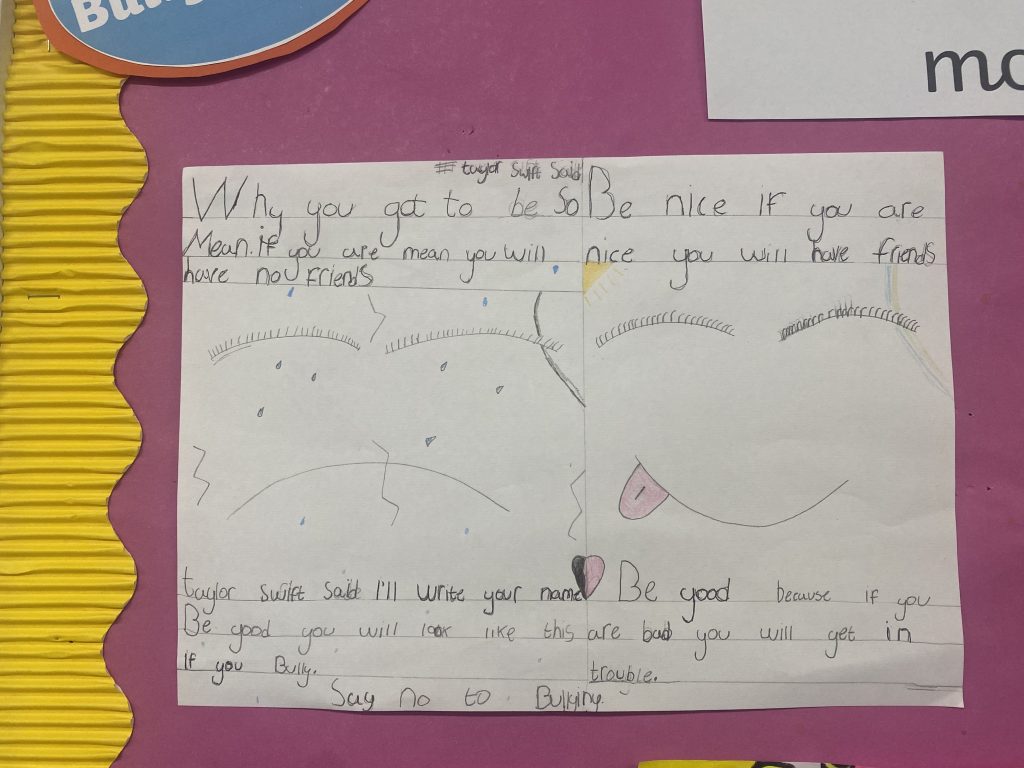 Bully
mo
# taylor Swift Said
Why you got to be So
Mean. if you are mean you will
have no friends
Be nice if you are
nice you will have friends
taylor swift Said I'll write your name
Be good you will look like this
if you Bully.
Be good because if you
are bad you will get in
trouble.
Say no to Bullying.